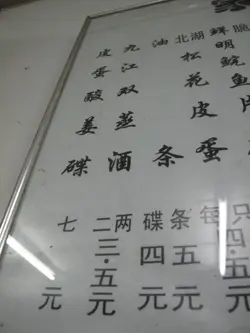 脆
鲜明鱿鱼
湖北松花皮蛋
油条
九江双蒸酒
皮蛋酸姜碟
只
四·五元
条五元
碟四元
两
二三·五元
七元